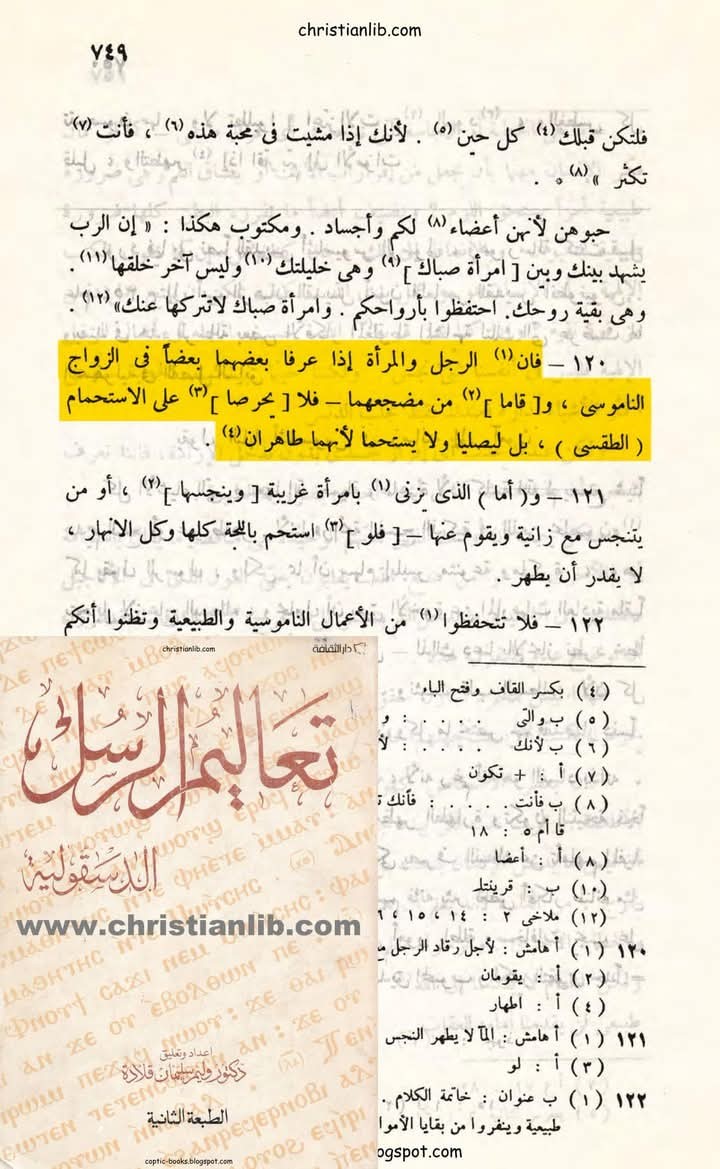 christianlib.com
٧٤٩
فلتكن قبلك (٤) كل حين (٥) . لأنك إذا مشيت فى محبة هذه (٦) ، فأنت (٧)
تكثر » (٨) * .
حبوهن لأنهن أعضاء (٨) لكم وأجساد . ومكتوب هكذا : « إن الرب
يشهد بينك وبين [ امرأة صباك ] (٩) وهى خليلتك (١٠) وليس آخر خلقها (١١) .
وهى بقية روحك. احتفظوا بأرواحكم . وامرأة صباك لاتتركها عنك» (١٢) .
١٢٠ – فان (١) الرجل والمرأة إذا عرفا بعضهما بعضاً فى الزواج
الناموسى ، و[ قاما ] (٢) من مضجعهما – فلا [ يحرصا ] (٣) على الاستحمام
( الطقسى ) ، بل ليصليا ولا يستحما لأنهما طاهران (٤) .
١٢١ – و( أما ) الذى يزنى (١) بامرأة غريبة [ وينجسها ] (٢) ، أو من
يتنجس مع زانية ويقوم عنها – [ فلو ] (٣) استحم باللجة كلها وكل الانهار ،
لا يقدر أن يطهر .
١٢٢ – فلا تتحفظوا (١) من الأعمال الناموسية والطبيعية وتظنوا أنكم
(٤) بكسر القاف وفتح الباء
(٥) ب والتى . . . . : و
(٦) ب لأنك . . . . : لأ
(٧) أ : + تكون
(٨) ب فأنت . . . . : فأنك ت
قا أم ٥ : ١٨
(٨) أ : أعضا
(١٠) ب : قرينتك
(١٢) ملاخى ٢ : ١٤ ، ١٥ ،
١٢٠ (١) أ هامش : لأجل رقاد الرجل
(٢) أ : يقومان
(٤) أ : اطهار
١٢١ (١) أ هامش : الما لا يطهر النجس
(٣) أ : لو
١٢٢ (١) ب عنوان : خاتمة الكلام .
طبيعية وينفروا من بقايا الأموا
ogspot.com
christianlib.com
دار الثقافة
تعاليم الرسل
الدسقولية
www.christianlib.com
اعداد وتعليق
دكتور وليم سليمان قلادة
الطبعة الثانية
coptic-books.blogspot.com